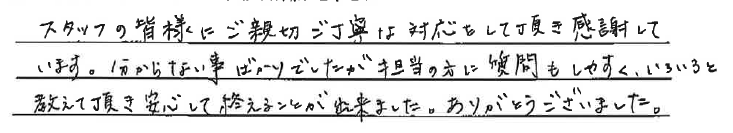 スタッフの皆様にご親切ご丁寧な対応をして頂き感謝して
います。分からない事ばかりでしたが担当の方に質問もしやすく、いろいろと
教えて頂き安心して終えることが出来ました。ありがとうございました。